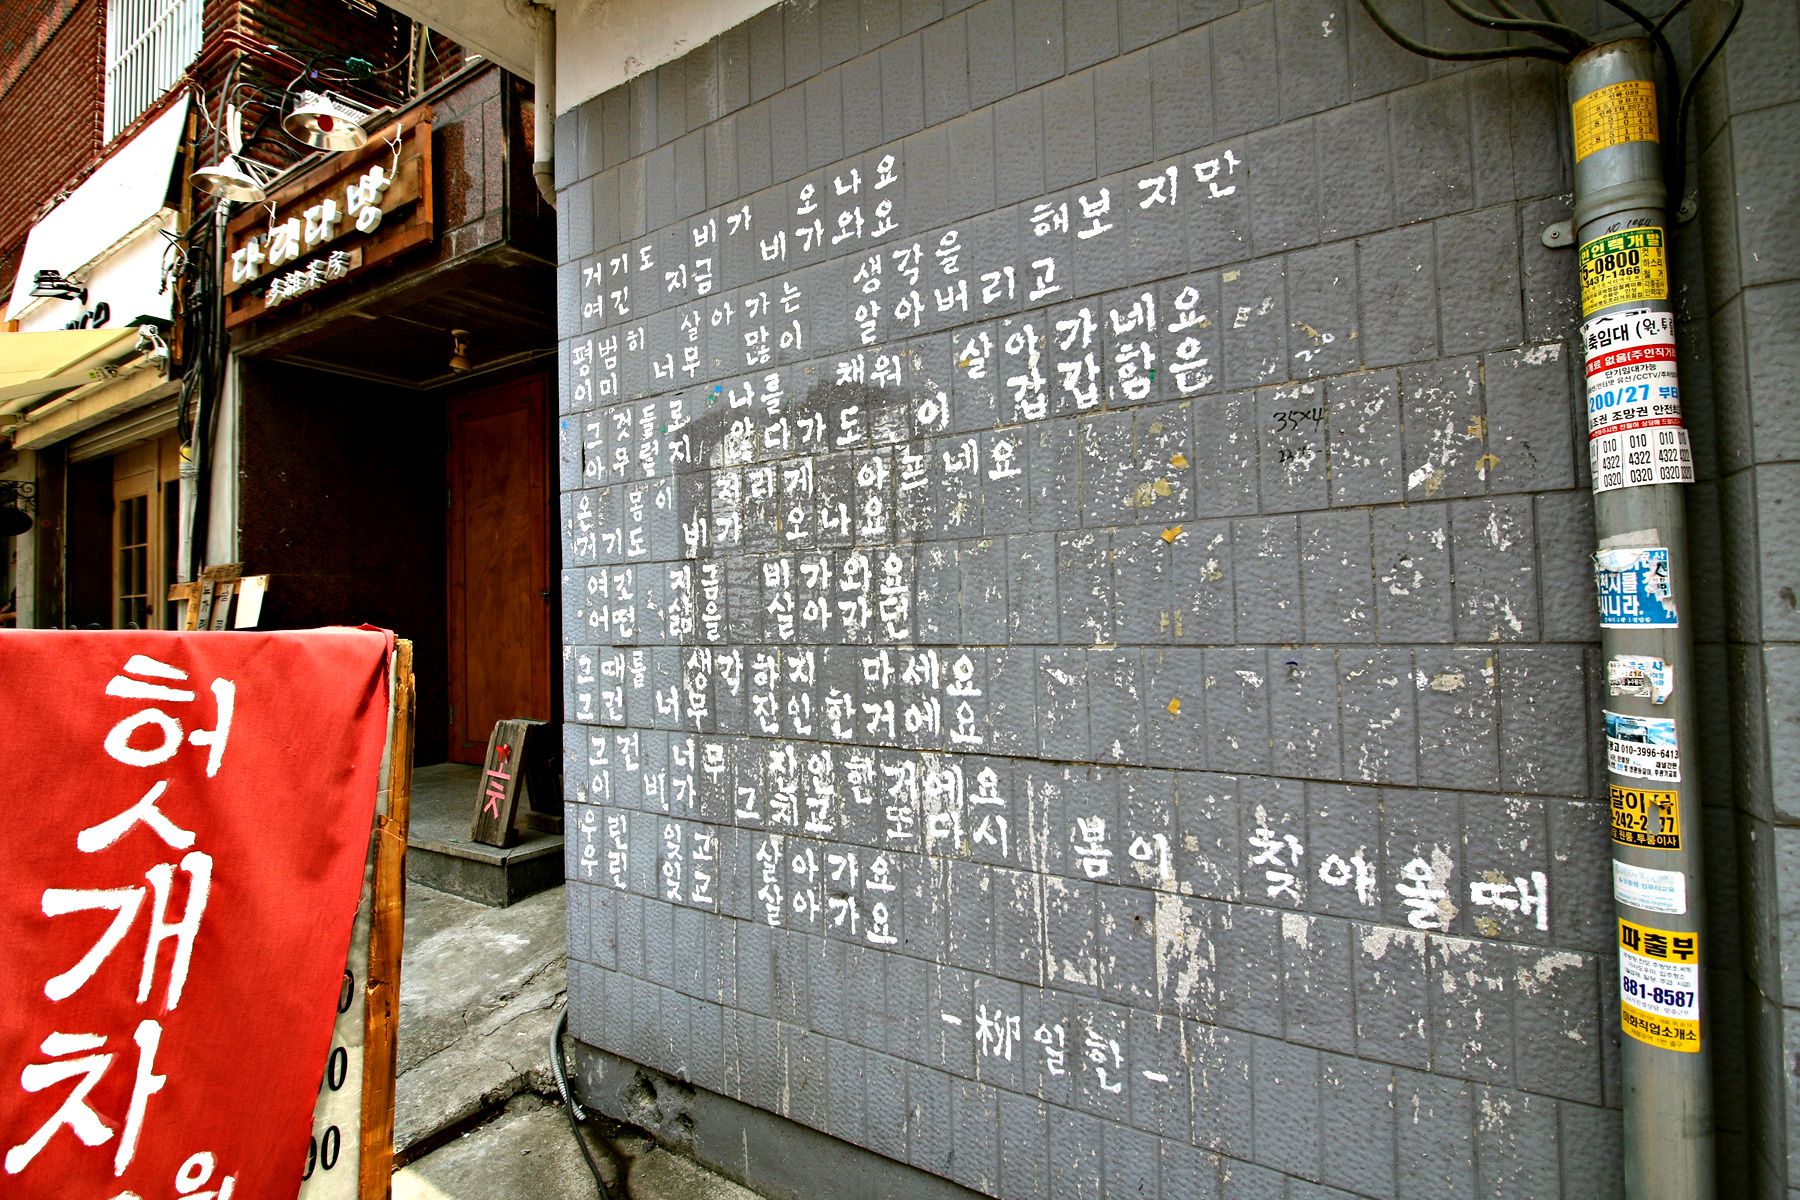 다래다방
多羅茶房
거기도 비가 오나요
여긴 지금 비가와요
평범히 살아가는 생각을 해보지만
이미 너무 많이 알아버리고
그것들로 나를 채워 살아가네요
아무렇지 않다가도 이 갑갑함은
온 몸이 저리게 아프네요
거기도 비가 오나요
여긴 지금 비가와요
어떤 삶을 살아가던
그때를 생각하지 마세요
그건 너무 잔인한거예요
그건 너무 잔인한거예요
이 비가 그치고 또 다시 봄이 찾아올때
우린 잊고 살아가요
우린 잊고 살아가요
-柳일한-
35×4
헛개차
NO. 1664
인력개발
5-0800
3437-1466
축임대
단기임대가능
200/27 부터
010 4322 0320
010 4322 0320
010 4322 0320
010-3996-6413
달이
파출부
881-8587
미화직업소개소